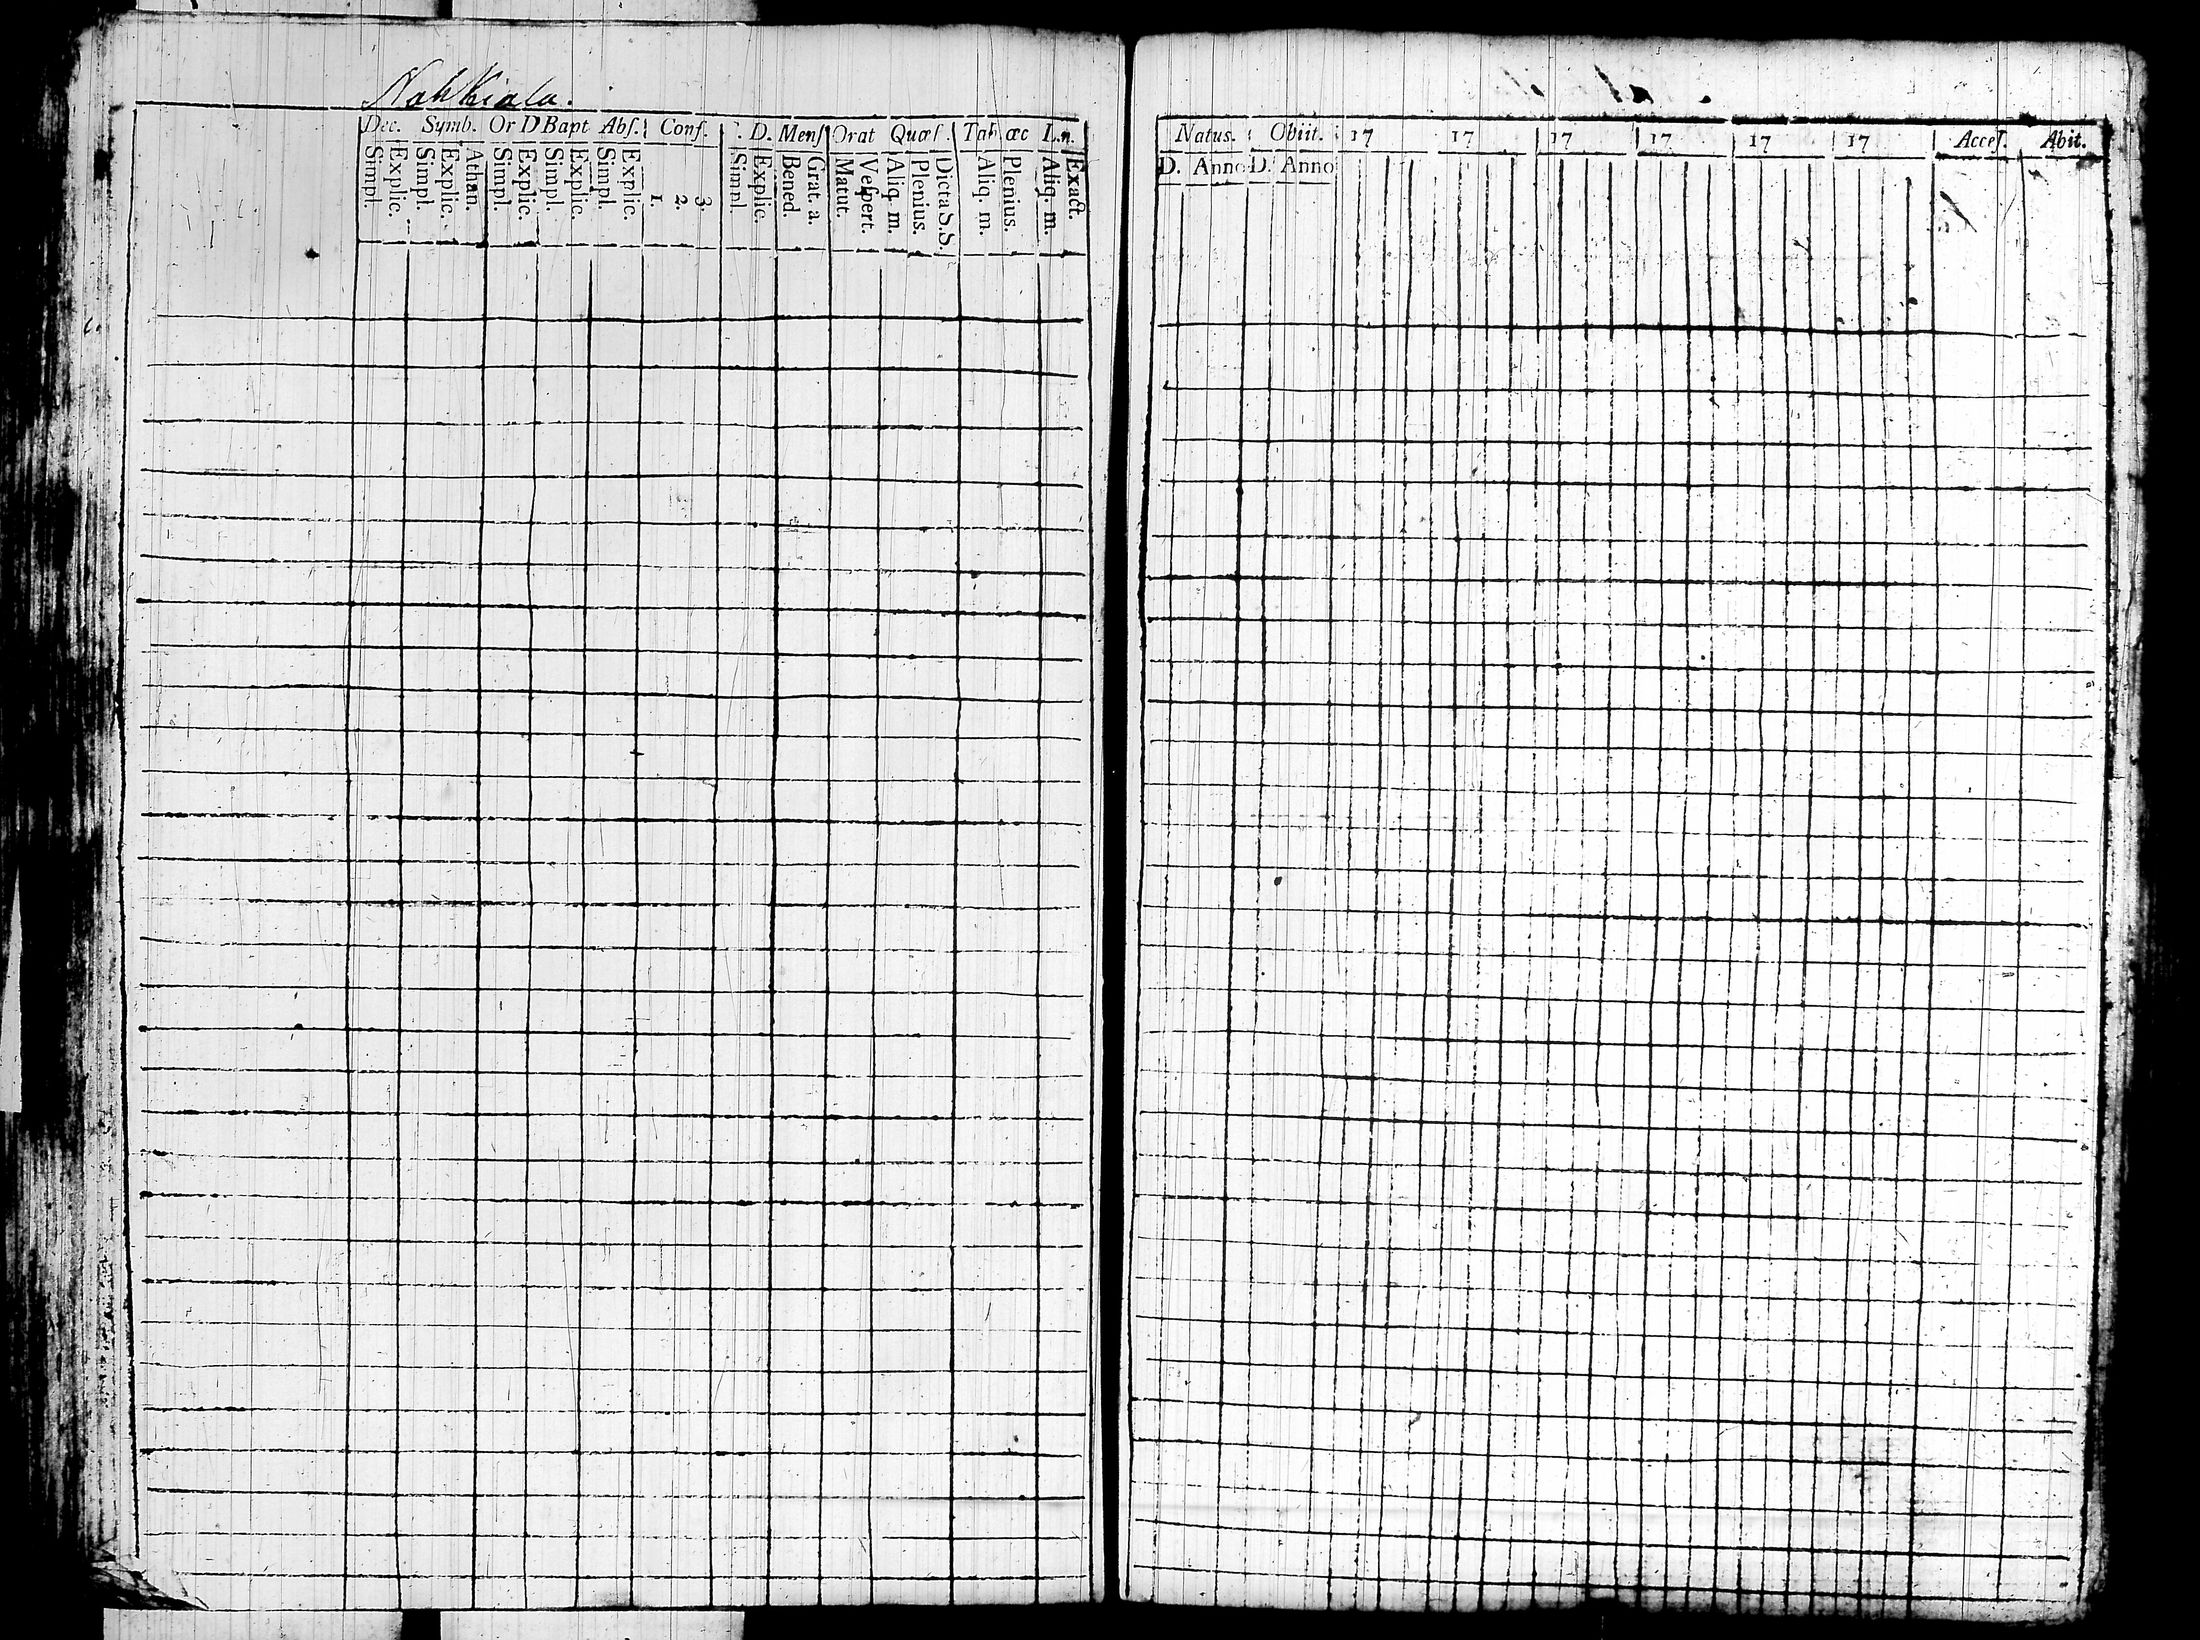 Nahkiala.
Dec. Symb. Or D Bapt Abſ. Conf. . D. Menſ Orat Quæſ. Tab. œc L.n.
Simpl. Explic. Simpl. Explic. Athan. Simpl. Explic. Simpl. Explic. Simpl. Explic. 1. 2. 3. Simpl. Explic. Bened. Grat. a. Matut. Veſpert. Aliq. m. Plenius. Dicta S.S. Aliq. m. Plenius. Aliq. m. Exact.
Natus. Obiit. 17 17 17 17 17 17 Acceſ. Abit.
D. Anno D. Anno